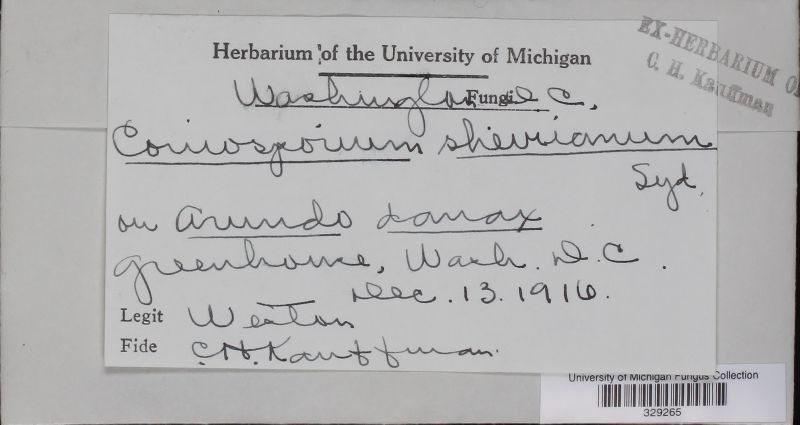 EX-HERBARIUM OF
C. H. Kauffman
Herbarium of the University of Michigan
Fungi
Washington D.C.
Coniosporium shevianum
Syd.
on Arundo donax
greenhouse, Wash. D.C.
Dec. 13. 1916.
Legit Weston
Fide C.H. Kauffman.
University of Michigan Fungus Collection
329265